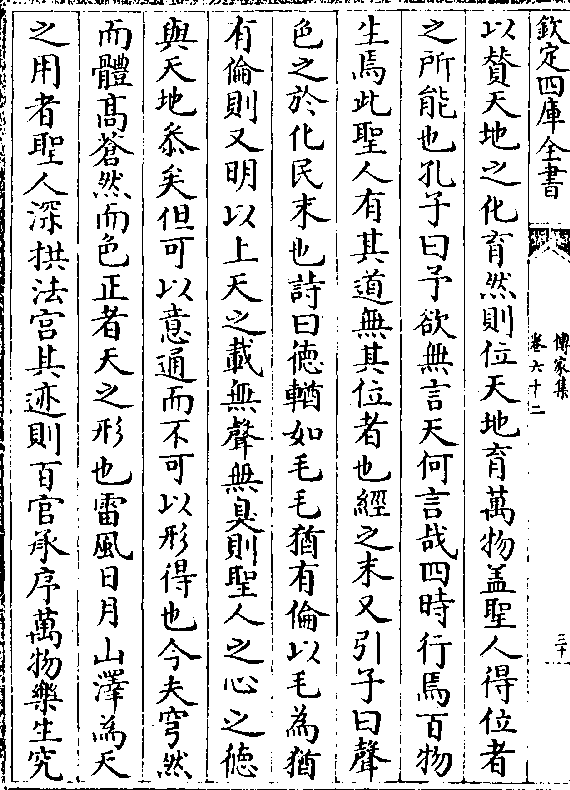 欽定四庫全書
傳家集
卷六十二
三十
以贊天地之化育然則位天地育萬物盖聖人得位者
之所能也孔子曰予欲無言天何言哉四時行焉百物
生焉此聖人有其道無其位者也經之末又引子曰聲
色之於化民末也詩曰徳輶如毛毛猶有倫以毛為猶
有倫則又明以上天之載無聲無臭則聖人之心之徳
與天地叅矣但可以意通而不可以形得也今夫穹然
而體髙蒼然而色正者天之形也雷風日月山澤為天
之用者聖人深拱法宫其迹則百官承序萬物樂生究